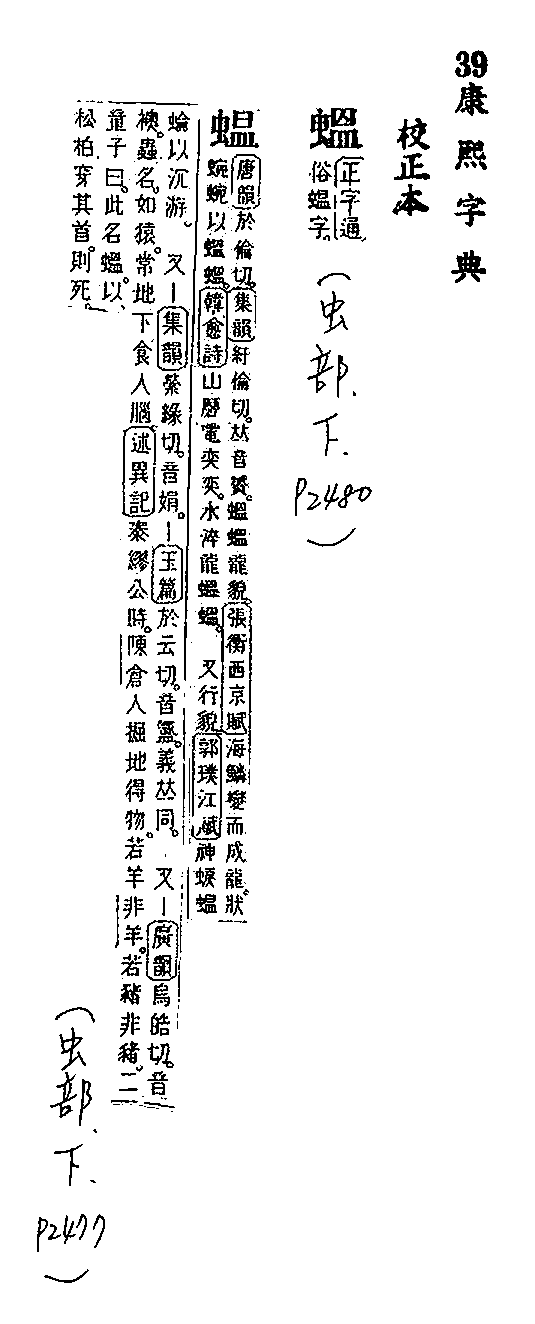 39康熙字典
校正本
𧎴正字通
俗蝹字
(虫部.下.
P2480)
蝹唐韻於倫切。集韻紆倫切。𠀤音贇。蝹蝹龍貌。張衡西京賦海鱗變而成龍。狀
蜿蜿以蝹蝹。韓愈詩山磨電奕奕。水淬龍蝹蝹。 又行貌郭璞江賦神蜧蝹
蜦以沉游。 又|集韻縈緣切。音娟。|玉篇於云切。音蒀。義𠀤同。 又|廣韻烏皓切。音
襖。蟲名。如猿。常地下食人腦述異記秦繆公時。陳倉人掘地得物。若羊非羊。若豬非豬。二
童子曰。此名蝹。以
松柏穿其首。則死。
(虫部.下.
P2477)